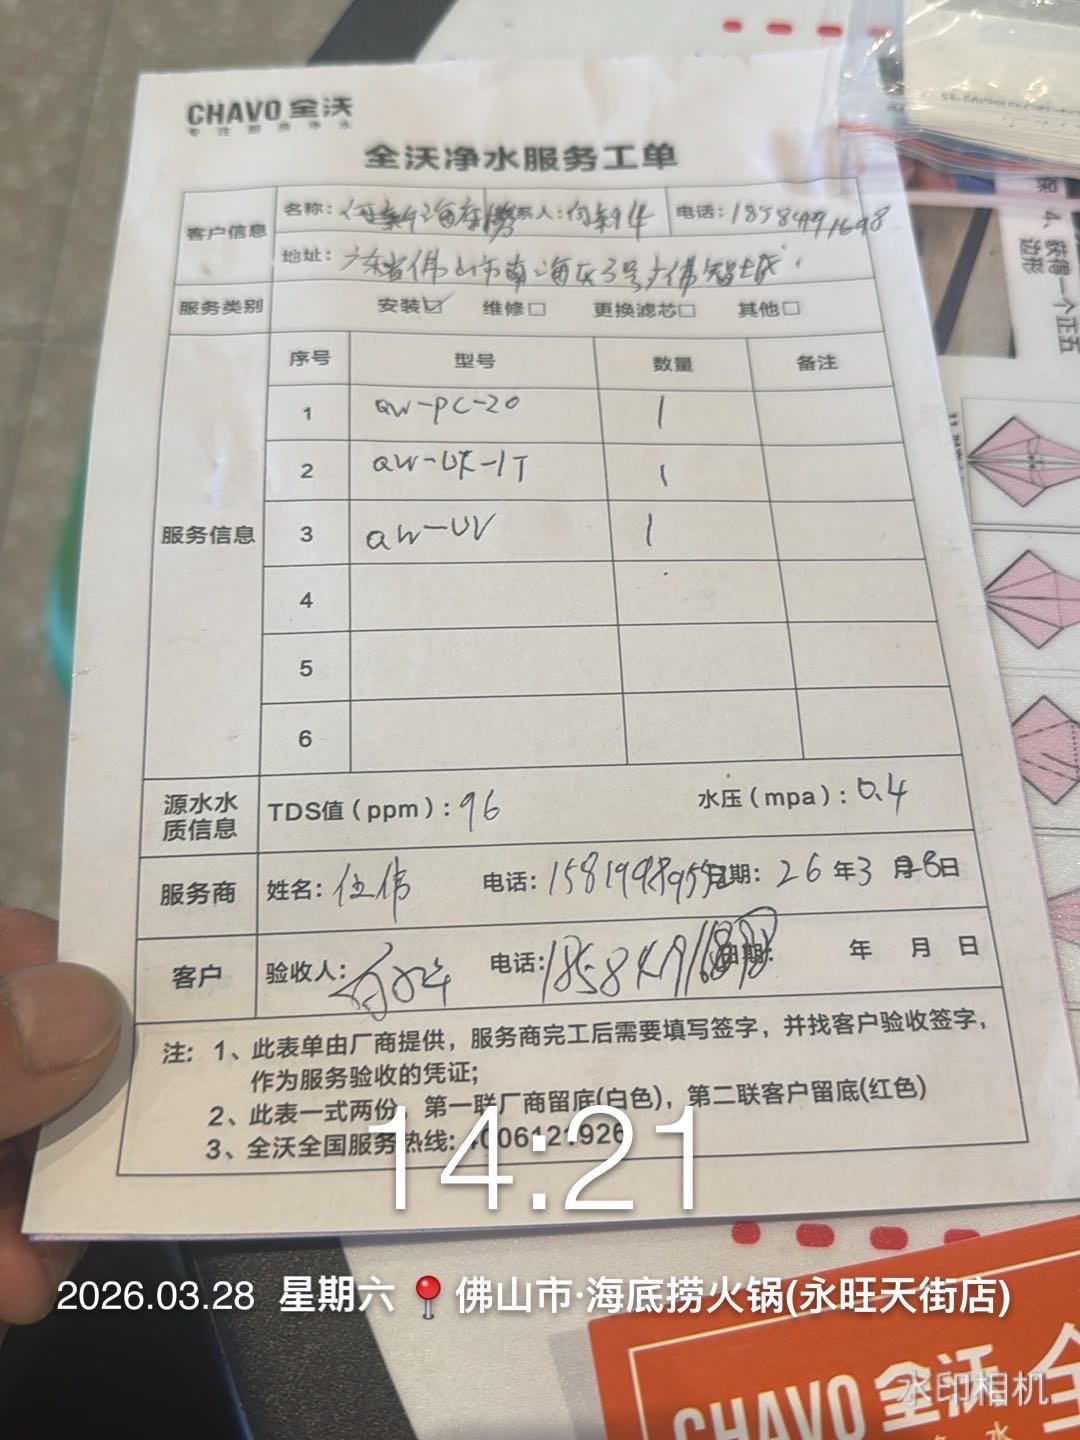 CHAVO 全沃
专注厨房净水
全沃净水服务工单
客户信息
名称: 海底捞 联系人: 电话:
地址: 广东省佛山市南海区3号广佛智城
服务类别 安装☑ 维修□ 更换滤芯□ 其他□
服务信息
序号 型号 数量 备注
1 QW-PC-20 1
2 QW-UK-1T 1
3 QW-UV 1
4
5
6
源水水质信息 TDS值(ppm): 96 水压(mpa): 0.4
服务商 姓名: 伍伟 电话: 日期: 26年3月28日
客户 验收人: 电话: 日期: 年 月 日
注: 1、此表单由厂商提供，服务商完工后需要填写签字，并找客户验收签字，
作为服务验收的凭证；
2、此表一式两份，第一联厂商留底(白色)，第二联客户留底(红色)
3、全沃全国服务热线: 4006121926
14:21
2026.03.28 星期六 佛山市·海底捞火锅(永旺天街店)
CHAVO 全沃
水印相机
4、获得一个正五
边形